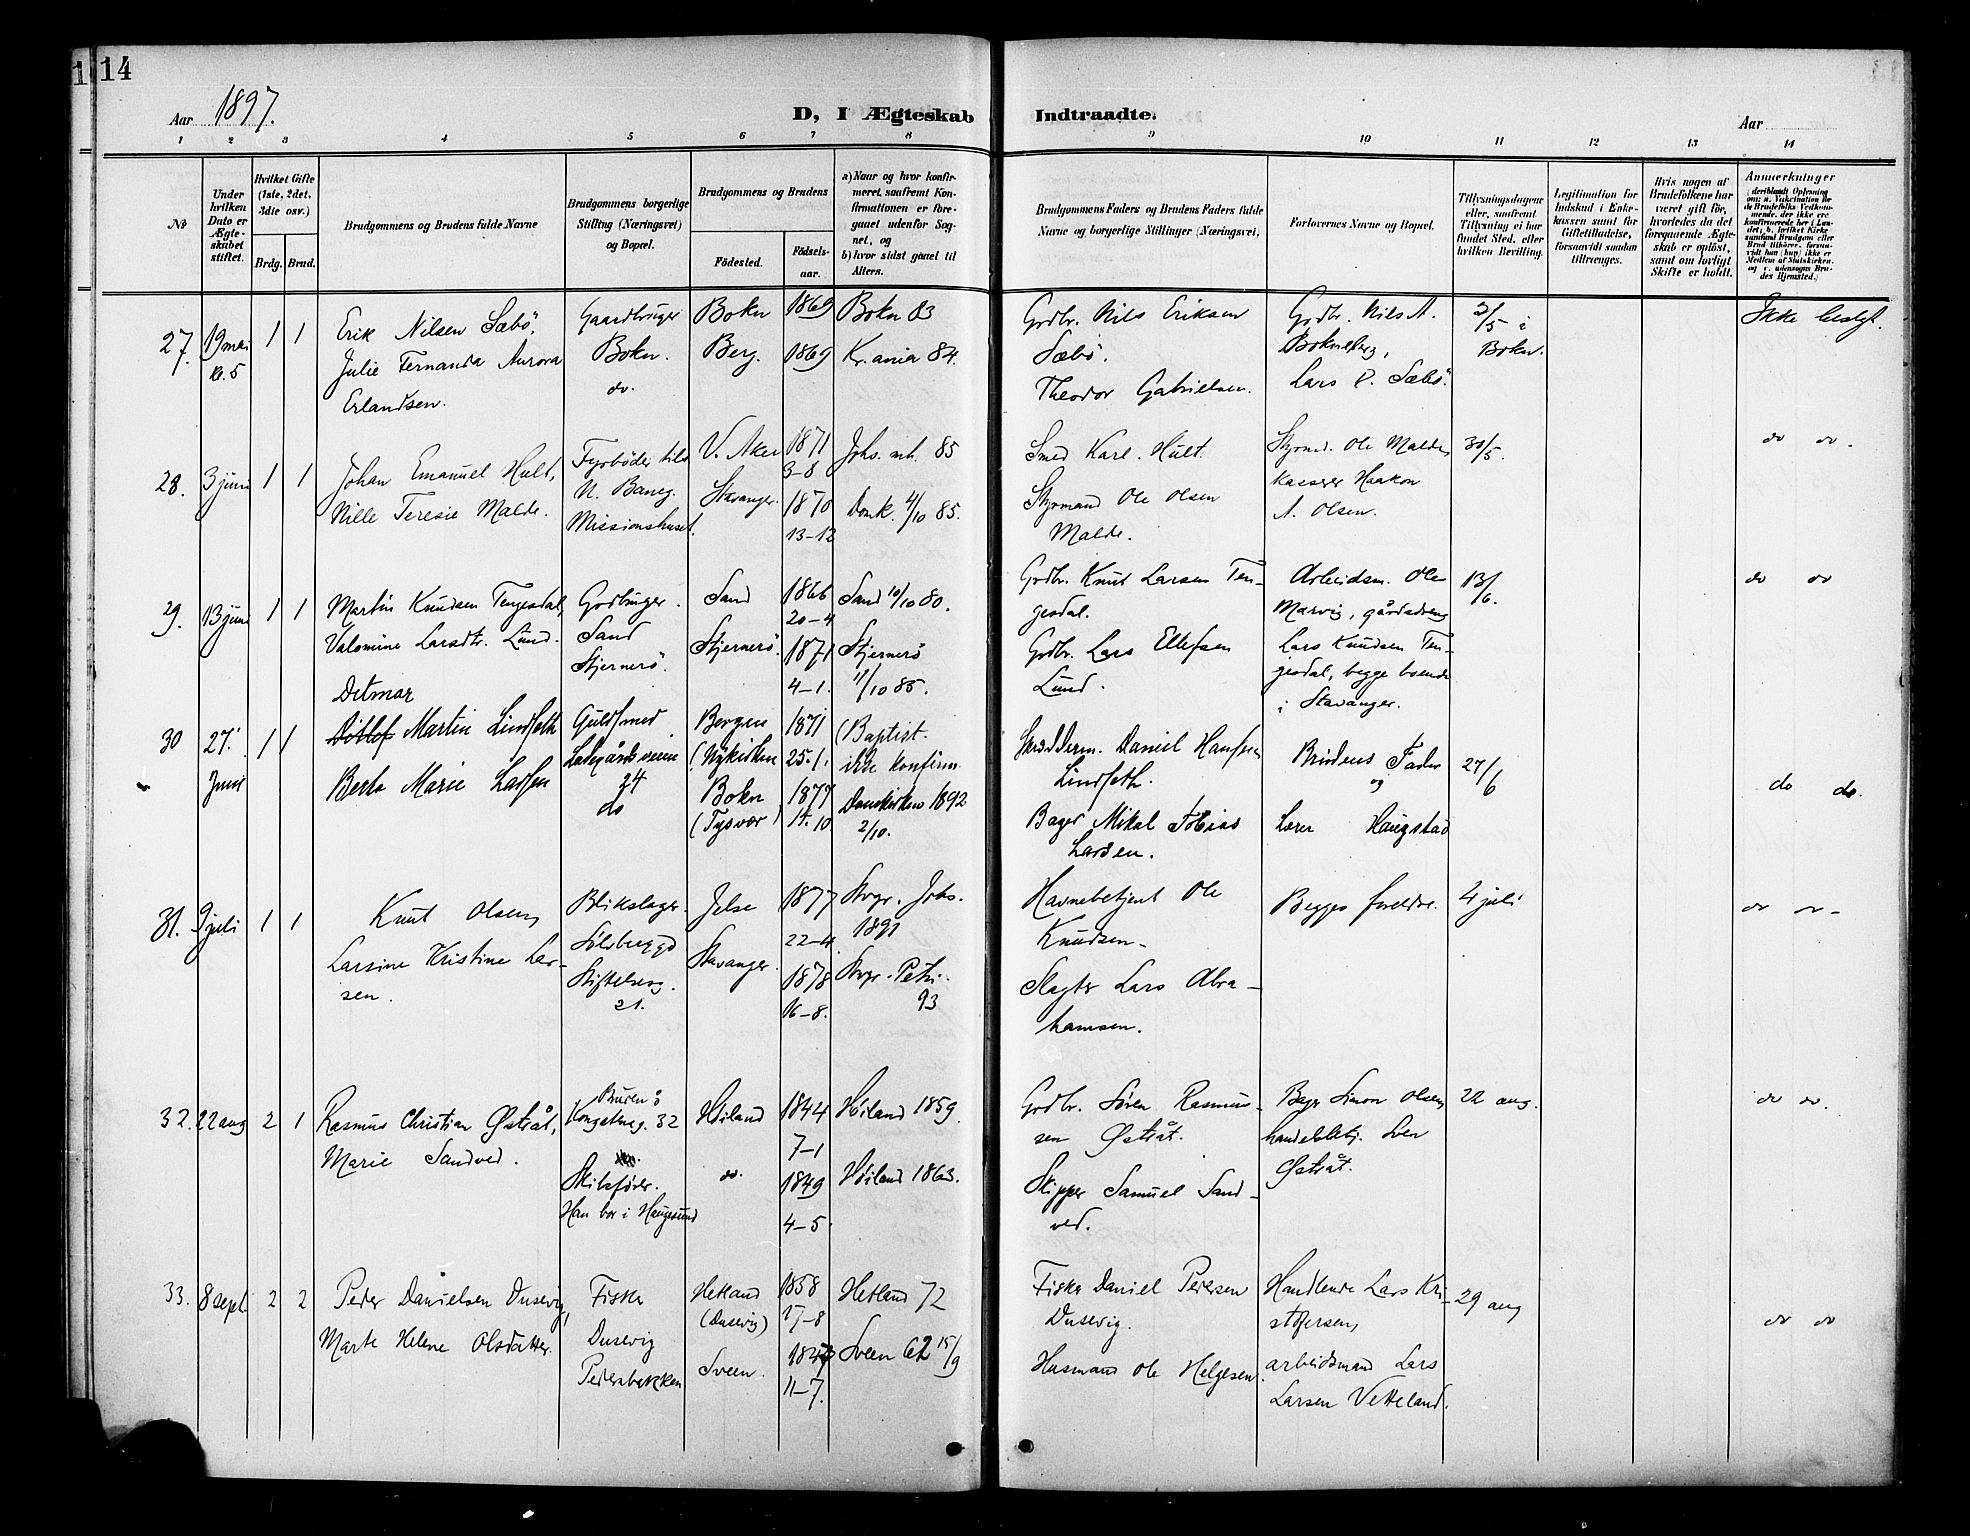 14
Aar 1897.
D, I Ægteskab Indtraadte.
Aar
1 2 3 4 5 6 7 8 9 10 11 12 13 14
No
Under hvilken Dato er Ægteskabet stiftet.
Hvilket Gifte (1ste, 2det, 3die osv.)
Brdg. Brud.
Brudgommens og Brudens fulde Navne
Brudgommens borgerlige Stilling (Næringsvei) og Bopæl.
Brudgommens og Brudens
Födested.
Födselsaar.
a) Naar og hvor konfirmeret, saafremt Konfirmationen er foregaaet udenfor Sognet, og
b) hvor sidst gaaet til Alters.
Brudgommens Faders og Brudens Faders fulde Navne og borgerlige Stillinger (Næringsvei,
Forlovernes Navne og Bopæl.
Tillysningsdagene eller, saafremt Tillysning ei har fundet Sted, efter hvilken Bevilling.
Legitimation for Indskud i Enkekassen samt for Giftetilladelse, forsaavidt saadan tiltrænges.
Hvis nogen af Brudefolkene har været gift för, hvorledes da det foregaaende Ægteskab er oplöst, samt om lovligt Skifte er holdt.
Anmærkninger
27. 19 mai kl. 5 1 1
Erik Nilsen Sæbö,
Julie Fernanda Aurora
Erlandsen.
Gaardbruger
Bokn.
do.
Bokn 1869 Bokn 83
Berg. 1869 Kr.ania 84.
Grdbr. Nils Eriksen
Sæbö.
Theodor Gabrielsen.
Grdbr. Nils A.
Bokneberg,
Lars E. Sæbö.
3/5 i
Bokn.
Ikke beslgt.
28. 3 juni 1 1
Johan Emanuel Hult,
Nille Teresie Malde.
Fyrbøder
Missionshuset.
V. Aker 1871 3-8 Johs. mh. 85
Stavanger. 1870 13-12 Domk. 4/10 85.
Smed Karl Hult.
Styrmand Ole Olsen
Malde.
Styrmd. Ole Malde,
Kasserer Haakon
A. Olsen.
30/5.
do do.
29. 13 juni 1 1
Martin Knudsen Tengesdal,
Valomine Larsdtr. Lund.
Grdbruger.
Sand
Stjernerö.
Sand 1866 20-4 Sand 10/10 80.
Stjernerö. 1871 4-1. Stjernerö 11/10 85.
Grdbr. Knut Larsen Ten-
gesdal.
Grdbr. Lars Ellefsen
Lund.
Arbeidsm. Ole
Marvig, gårdsdreng
Lars Knudsen Ten-
gesdal, begge boende
i Stavanger.
13/6.
do do
30 27. Juni 1 1
Ditmar
Ditlof Martin Lindseth
Berta Marie Larsen
Guldsmed
Ladegårdsveien
24
do
Bergen (Nykirken 1871 25.1. (Baptist. ikke konfirm.
Bokn (Tysvær) 1877 14.10 Domkirken 1892 2/10.
Skrædderm. Daniel Hansen
Lindseth.
Bager Mikal Tobias
Larsen.
Brudens Fader
og
Lærer Haugstad
27/6
do do.
31. 9 juli 1 1
Knut Olsen,
Larsine Kristine Lar-
sen.
Blikslager.
Sölvberggd
Stiftelsesg.
21.
Jelse 1877 22-4 Stvgr. Johs. 1891
Stavanger. 1878 16-8. Stvgr. Petri. 93
Havnebetjent Ole
Knudsen-
Slagter Lars Abra-
hamsen.
Begges foreldre.
4 juli
do do-
32. 22 aug 2 1
Rasmus Christian Østråt,
Marie Sandved.
Bruden:
Kongsteng. 32
Skibsfører.
Han bor i Haugesund
Høiland 1844 7-1 Høiland 1859.
do. 1849 4-5 Høiland 1863.
Grdbr. Sören Rasmus-
sen Østråt.
Skipper Samuel Sand-
ved.
Bager Simon Olsen,
handelsbetj. Sven
Østråt.
22 aug.
do do.
33. 8 sept. 2 2
Peder Danielsen Dusevig,
Marte Helene Olsdatter.
Fisker
Dusevig
Pedersbakken
Hetland (Dusevig) 1858 17-8 Hetland 72
Sveen. 1847 11-7. Sveen 62 15/9
Fisker Daniel Pedersen
Dusevig.
Husmand Ole Helgesen.
Handlende Lars Kri-
stofersen,
arbeidsmand Lars
Larsen Vetteland.
29 aug
do do